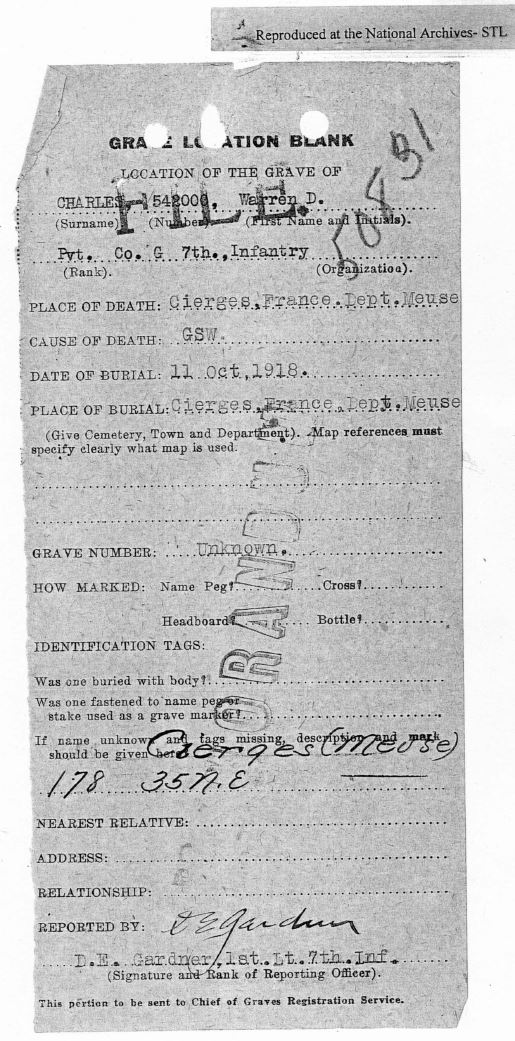 Reproduced at the National Archives- STL
GRAVE LOCATION BLANK
LOCATION OF THE GRAVE OF
50831
CHARLES, 542000, Warren D.
(Surname) (Number) (First Name and Initials).
FILE.
Pvt. Co. G 7th., Infantry
(Rank). (Organization).
PLACE OF DEATH: Cierges, France. Dept. Meuse
CAUSE OF DEATH: GSW.
DATE OF BURIAL: 11 Oct, 1918.
PLACE OF BURIAL: Cierges, France, Dept. Meuse
(Give Cemetery, Town and Department). Map references must
specify clearly what map is used.
GRAVE NUMBER: Unknown.
HOW MARKED: Name Peg? Cross?
Headboard? Bottle?
IDENTIFICATION TAGS:
Was one buried with body?
Was one fastened to name peg or
stake used as a grave marker?
If name unknown and tags missing, description and mark
should be given here
Cierges (Meuse)
178 35 N.E
NEAREST RELATIVE:
ADDRESS:
RELATIONSHIP:
REPORTED BY: D E Gardner
D.E. Gardner, 1st. Lt. 7th. Inf.
(Signature and Rank of Reporting Officer).
This portion to be sent to Chief of Graves Registration Service.